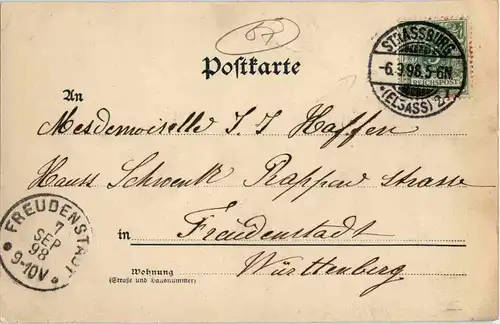 57
Postkarte
STRASSBURG
-6.9.98.5-6N
*(ELSASS)2.f
REICHSPOST
An
Mesdemoiselle J. J. Haffen
Hauss Schwenk Rappen strasse
in Freudenstadt
Württenberg
FREUDENSTADT
7
SEP
98
9-10V
Wohnung
(Straße und Hausnummer)